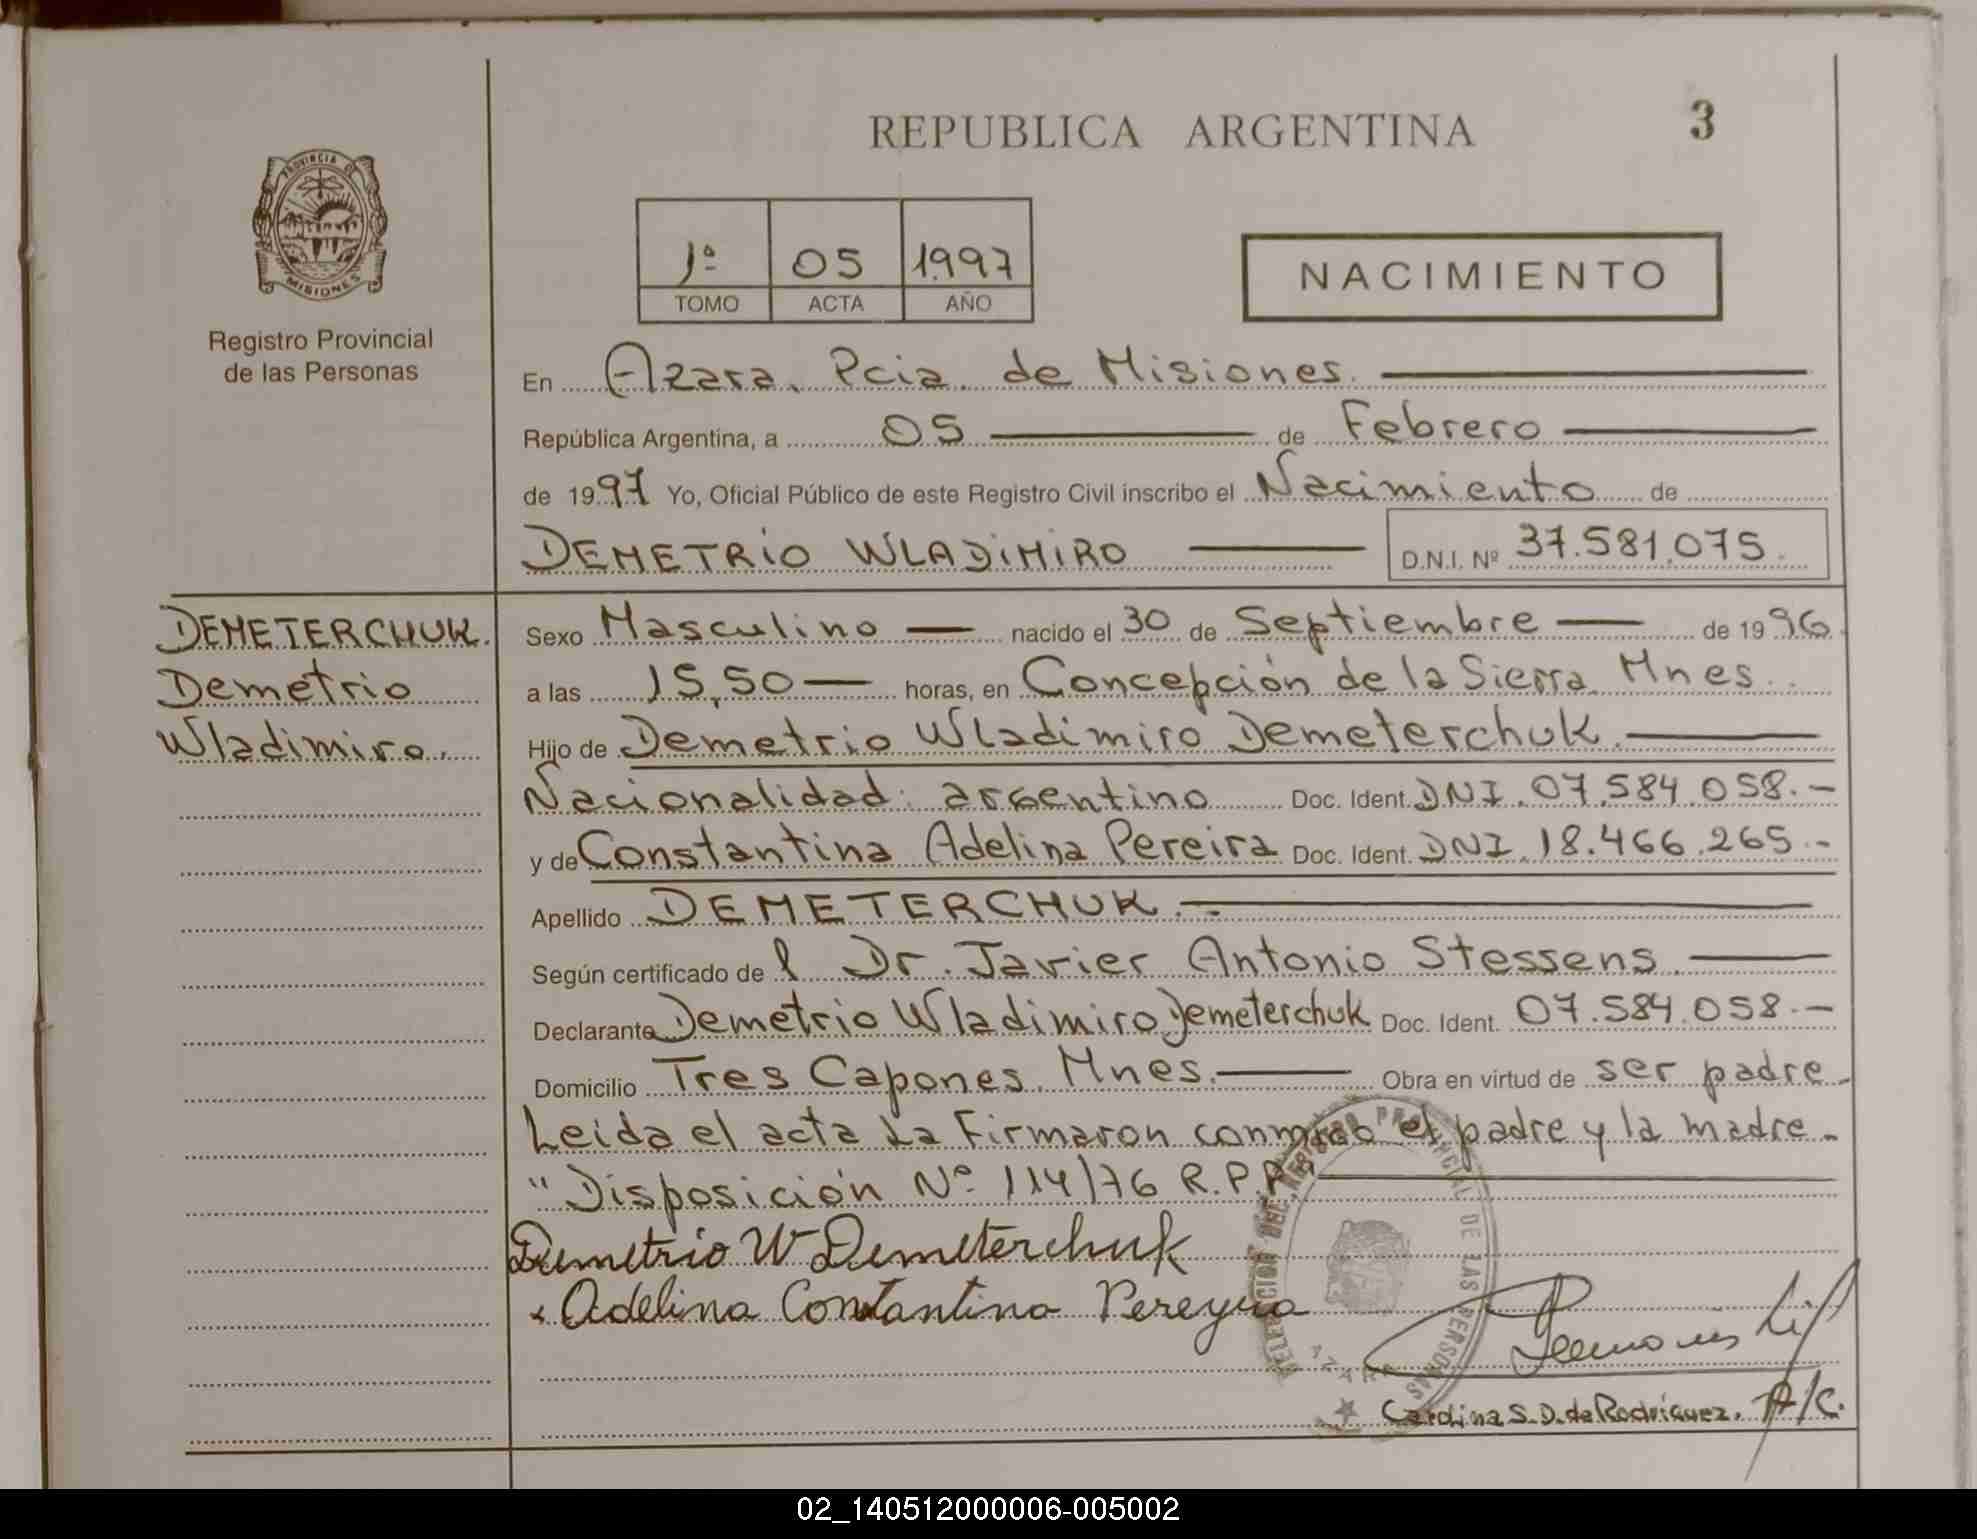 REPUBLICA ARGENTINA
3
PROVINCIA DE
MISIONES
Registro Provincial
de las Personas
1º 05 1997
TOMO ACTA AÑO
NACIMIENTO
En Azara, Pcia. de Misiones.
República Argentina, a 05 de Febrero
de 1997 Yo, Oficial Público de este Registro Civil inscribo el Nacimiento de
DEMETRIO WLADIMIRO D.N.I. Nº 37.581.075.
DEMETERCHUK.
Demetrio
Wladimiro.
Sexo Masculino nacido el 30 de Septiembre de 1996
a las 15,50 horas, en Concepción de la Sierra. Mnes.
Hijo de Demetrio Wladimiro Demeterchuk.
Nacionalidad: argentino Doc. Ident. DNI. 07.584.058.-
y de Constantina Adelina Pereira Doc. Ident. DNI. 18.466.265.-
Apellido DEMETERCHUK.-
Según certificado de l Dr. Javier Antonio Stessens.
Declarante Demetrio Wladimiro Demeterchuk Doc. Ident. 07.584.058.-
Domicilio Tres Capones. Mnes. Obra en virtud de ser padre.
Leida el acta La Firmaron conmigo el padre y la madre.
"Disposición Nº 114/76 R.P.P.
Demetrio W Demeterchuk
Adelina Constantina Pereyra
DELEGACION DEL REGISTRO PROVINCIAL DE LAS PERSONAS
AZARA
Carolina S. D. de Rodríguez. A/C.
02_140512000006-005002